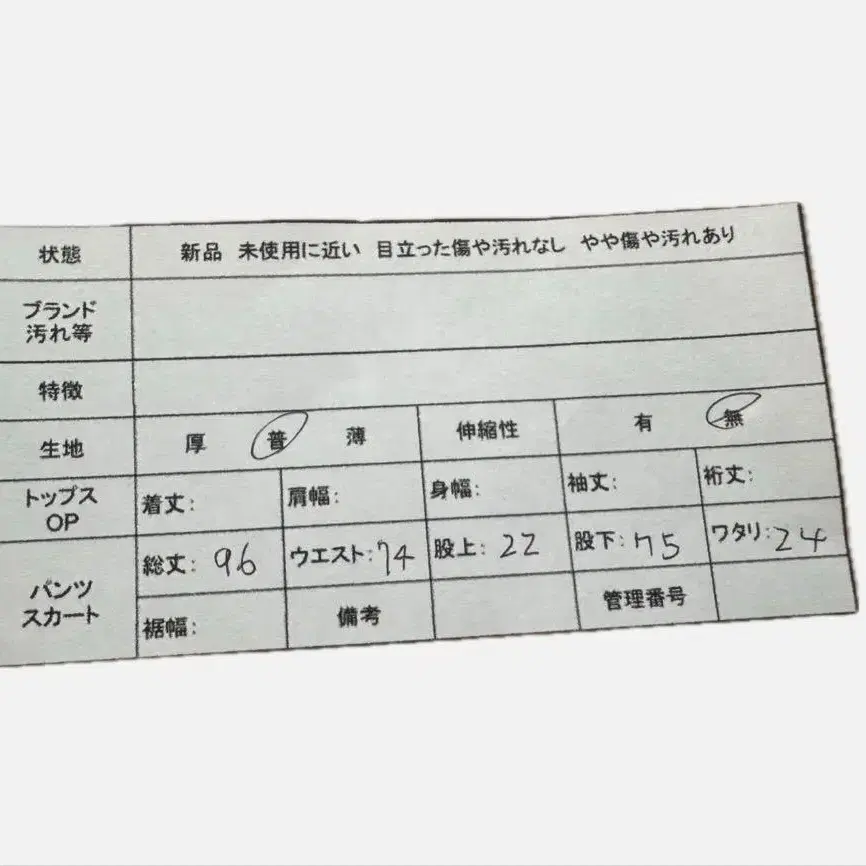 状態 新品 未使用に近い 目立った傷や汚れなし やや傷や汚れあり
ブランド
汚れ等
特徴
生地 厚 普 薄 伸縮性 有 無
トップス
OP
着丈: 肩幅: 身幅: 袖丈: 裄丈:
パンツ
スカート
総丈: 96 ウエスト: 74 股上: 22 股下: 75 ワタリ: 24
裾幅: 備考 管理番号